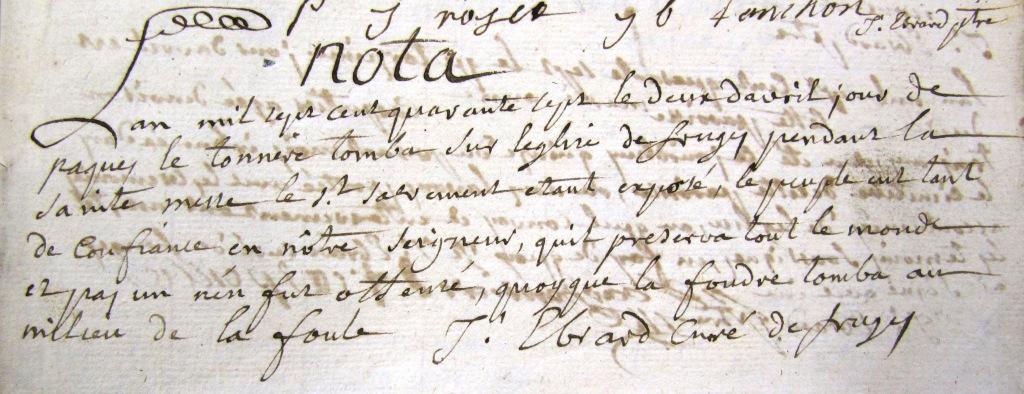 J. Ebrard ptre
nota
Lan mil sept cent quarante sept le deux davril jour de
paques le tonnere tomba sur leglise de frugy pendant la
sainte messe le st. sacrement etant exposé, le peuple eut tant
de confiance en nôtre seigneur, quil preserva tout le monde
et pas un nén fut offensé, quoyque la foudre tomba au
milieu de la foule J. Ebrard Curé de frugy